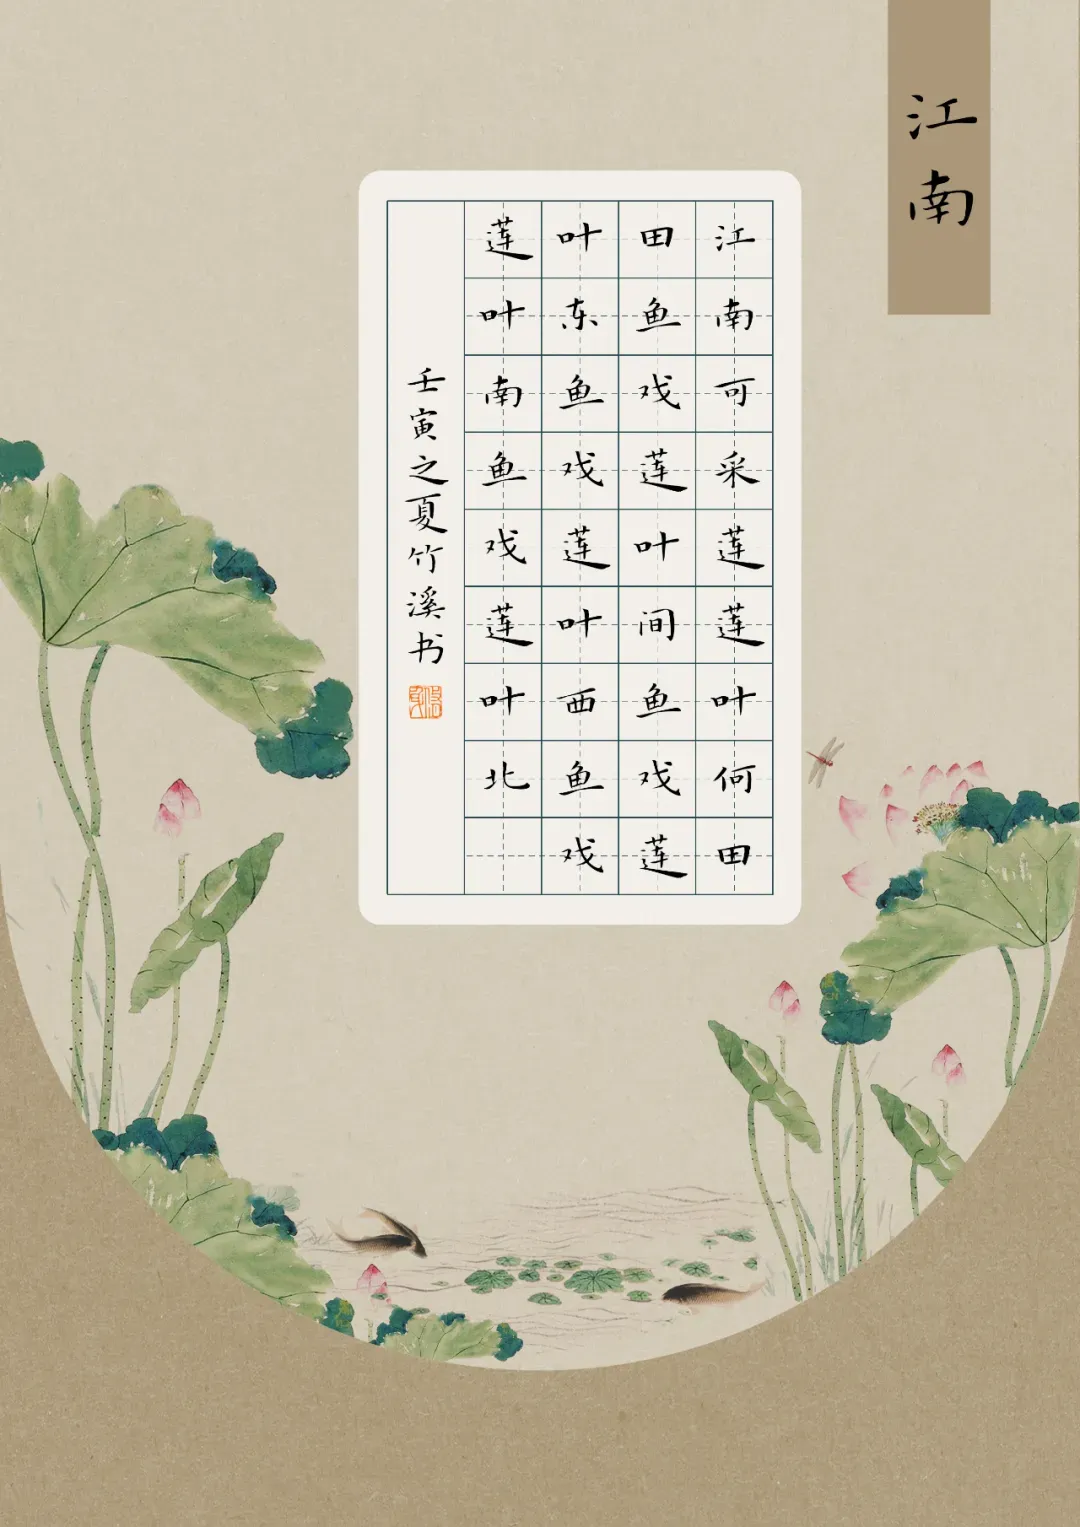 江南
江南可采莲莲叶何田
田鱼戏莲叶间鱼戏莲
叶东鱼戏莲叶西鱼戏
莲叶南鱼戏莲叶北
壬寅之夏竹溪书